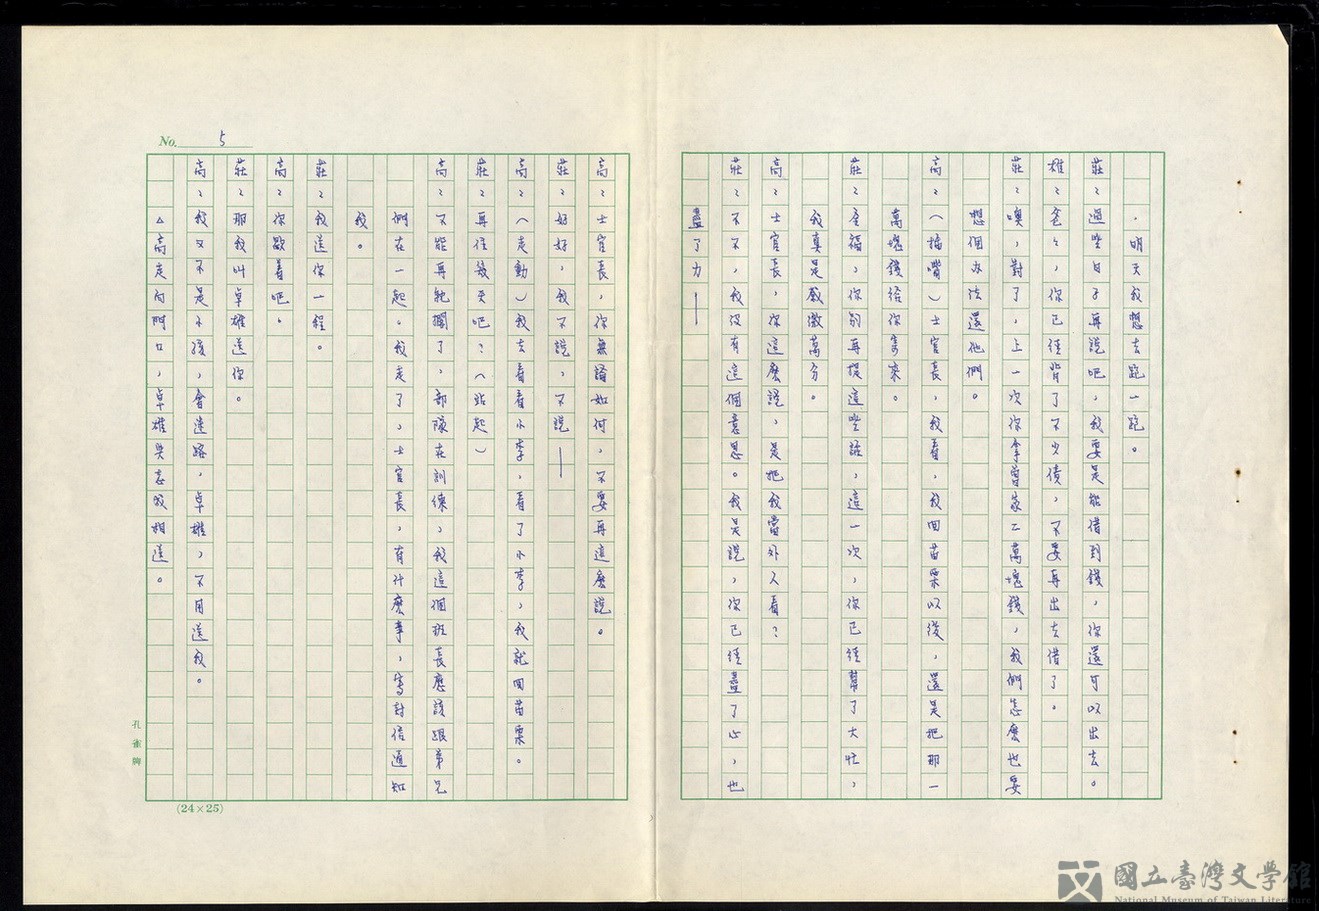 。明天我想去跑一跑。
莊：過些日子再說吧，我要是能借到錢，你還可以出去。
雄：爸々，你已經背了不少債，不要再出去借了。
莊：噢，對了，上一次你拿曾家二萬塊錢，我們怎麼也要
想個办法還他們。
高：（插嘴）士官長，我看，我回苗栗以後，還是把那一
萬塊錢給你寄來。
莊：全福，你別再提這些話，這一次，你已經幫了大忙，
我真是感激萬分。
高：士官長，你這麼說，是把我當外人看？
莊：不不，我沒有這個意思。我是說，你已經盡了心，也
盡了力——
No. 5
高：士官長，你無論如何，不要再這麼說。
莊：好好，我不說，不說——
高：（走動）我去看看小李，看了小李，我就回苗栗。
莊：再住幾天吧？（站起）
高：不能再躭擱了，部隊在訓練，我這個班長應該跟弟兄
們在一起。我走了，士官長，有什麼事，寫封信通知
我。
莊：我送你一程。
高：你歇着吧。
莊：那我叫卓雄送你。
高：我又不是小孩，會迷路，卓雄，不用送我。
△高走向門口，卓雄與志成相送。
孔雀牌
(24×25)
國立臺灣文學館
National Museum of Taiwan Literature